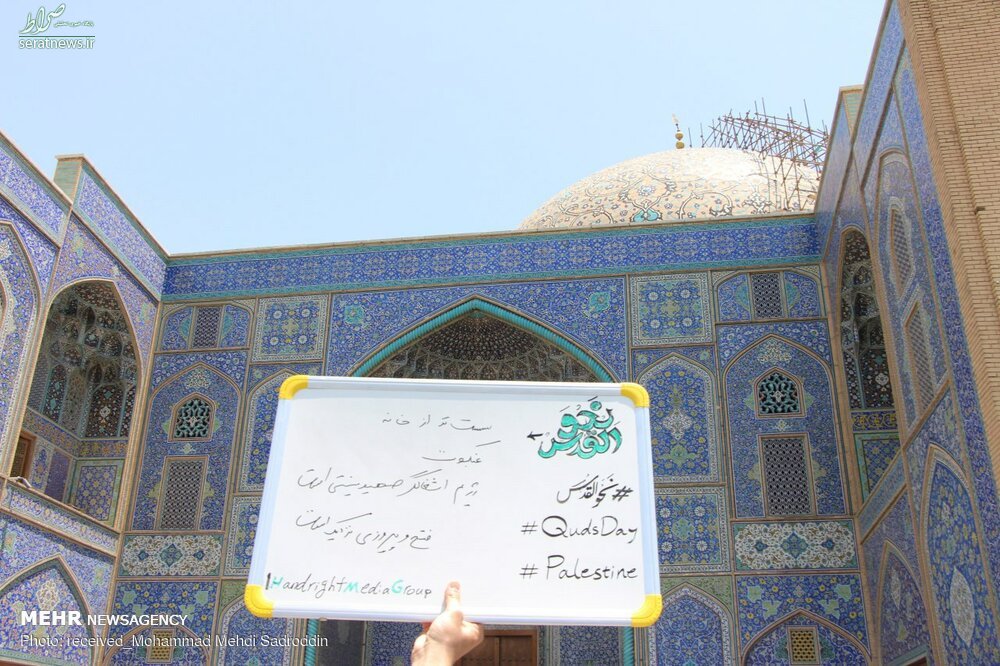 صراط
seratnews.ir
نحو
القدس
#نحو_القدس
#QudsDay
#Palestine
سست تر از خانه
عنکبوت
رژیم اشغالگر صهیونیستی است
فتح و پیروزی نزدیک است
HandrightMediaGroup
MEHR NEWSAGENCY
Photo: received_Mohammad Mehdi Sadroddin